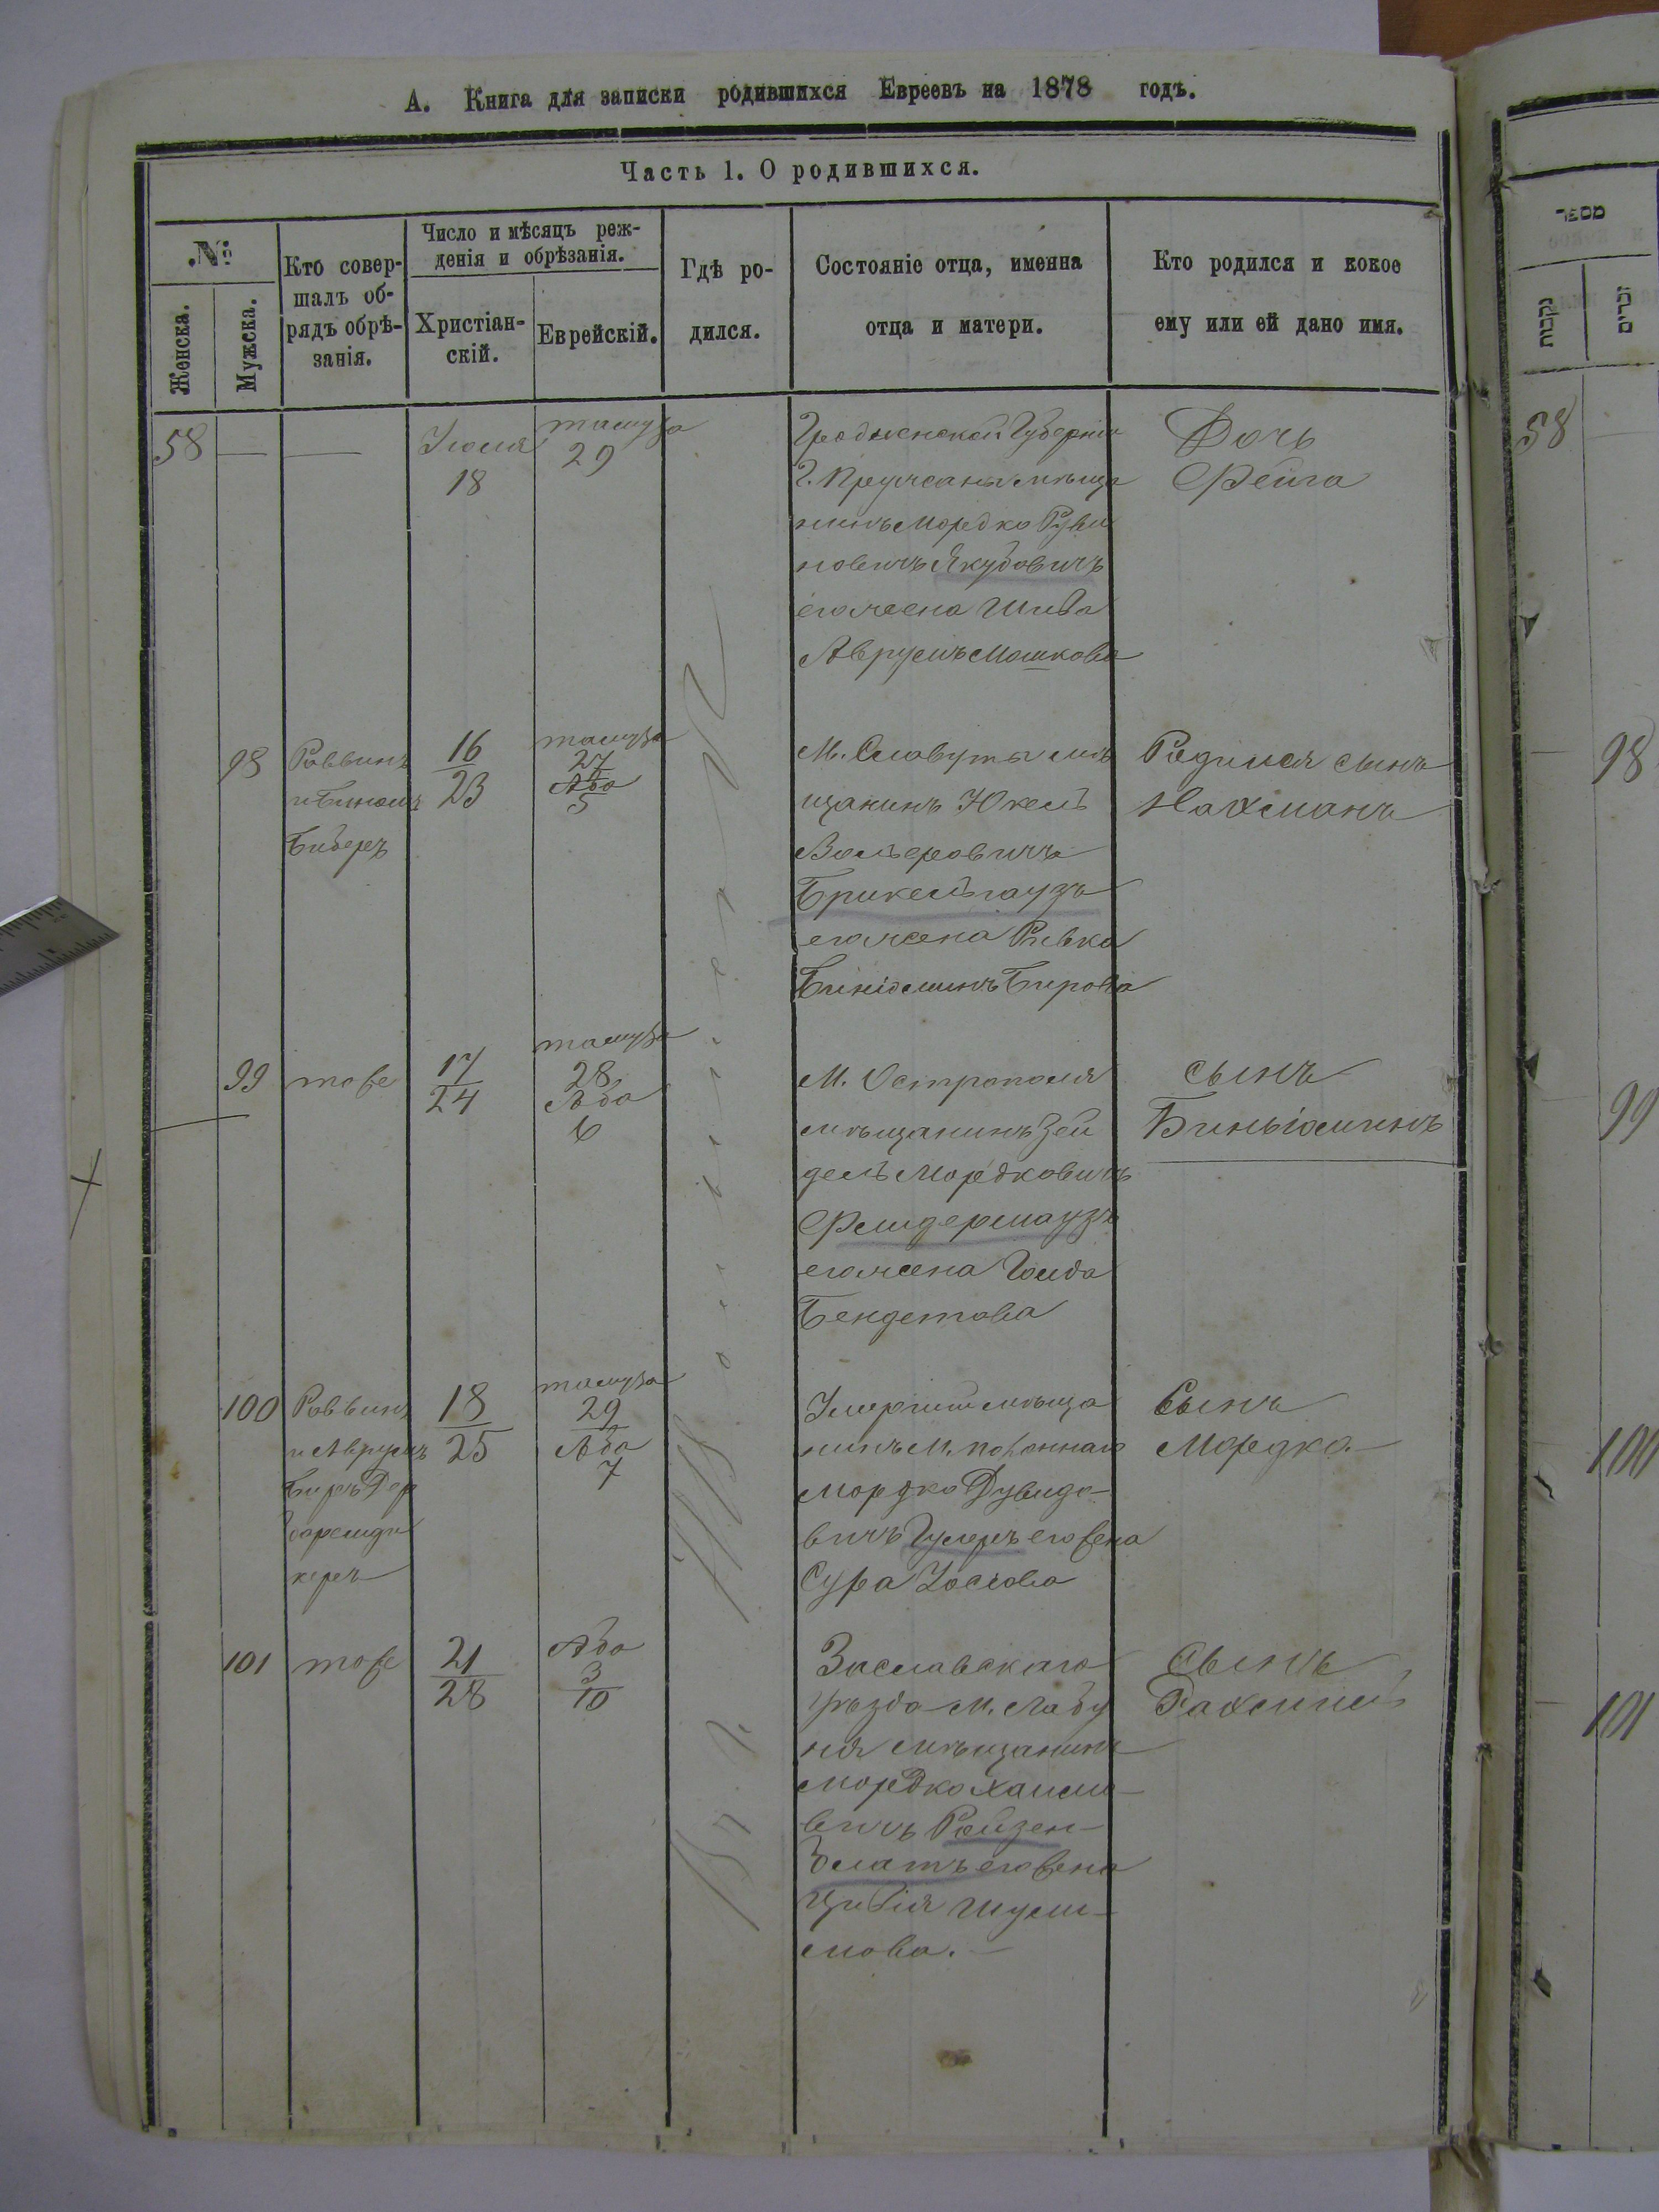 А. Книга для записки родившихся Евреевъ на 1878 годъ.
Часть 1. О родившихся.
№
Женска.
Мужска.
Кто совер-
шалъ об-
рядъ обрѣ-
занія.
Число и мѣсяцъ реж-
денія и обрѣзанія.
Христіан-
скій.
Еврейскій.
Гдѣ ро-
дился.
Состояніе отца, именна
отца и матери.
Кто родился и кокое
ему или ей дано имя.
58 — —
Іюля
18
тамуза
29
Гродненской Губерніи
Г. Пружаны мѣща
нинъ Мордко Руви
новичъ Якубовичъ
его жена Шива
Аврумъ Мошкова
Дочь
Фейга
98
Раввинъ
и Биніомъ
Биберъ
16
23
тамуза
27
Аба
5
М. Славуты мѣ
щанинъ Юкель
Вольеровичъ
Брикельгаузъ
его жена Ривка
Биніоминъ Бирова
Родился сынъ
Нахманъ
99
тоже
17
24
тамуза
28
Аба
6
М. Острополя
мѣщанинъ Зей
дель Мордковичъ
Флидермаузъ
его жена Голда
Бендетова
сынъ
Биньіоминъ
100
Раввинъ
и Аврумъ
Беръ Гер
баремди
керъ
18
25
тамуза
29
Аба
7
Умершій мѣща
нинъ М. Полоннаго
Мордко Дувидо-
вичъ Гулеръ его жена
Сура Іосіова
Сынъ
Мордко.—
101
тоже
21
28
Аба
3
10
Заславскаго
уѣзда М. Лабу
ня мѣщанинъ
Мордко Хаимо-
вичъ Рейзен-
блатъ его жена
Цивія Шули-
мова.—
Сынъ
Рахмиель
מספר
נקבות
זכרים
58
98
99
100
101